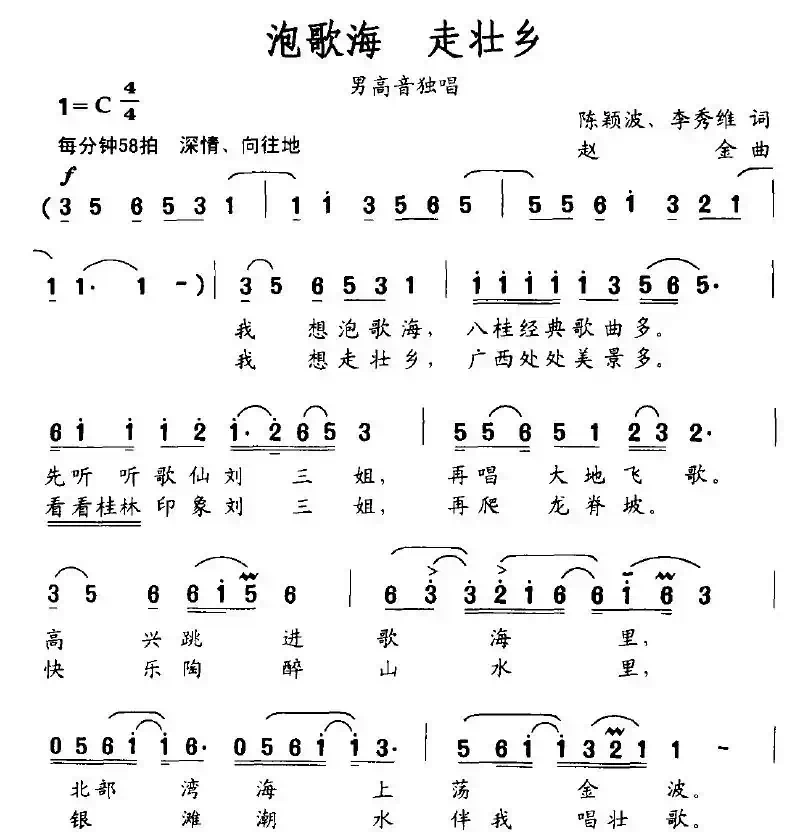 泡歌海 走壮乡
男高音独唱
1=C 4/4
陈颖波、李秀维 词
每分钟58拍 深情、向往地
赵 金 曲
f
(3 5 6 5 3 1 | 1 i 3 5 6 5 | 5 5 6 i 3 2 1 |
1 1· 1 -) | 3 5 6 5 3 1 | i i i i i 3 5 6 5· |
我 想泡歌海, 八桂经典歌曲多。
我 想走壮乡, 广西处处美景多。
6 i i i 2 i· 2 6 5 3 | 5 5 6 5 1 2 3 2· |
先听 听歌仙刘 三 姐, 再唱 大地飞 歌。
看看桂林印象刘 三 姐, 再爬 龙脊坡。
3 5 6 6 i 5 6 | 6 3 3 2 1 6 6 i 6 3 |
高 兴跳 进 歌 海 里,
快 乐陶 醉 山 水 里,
0 5 6 i i 6· 0 5 6 i i 3· | 5 6 i i 3 2 1 1 - |
北部 湾 海 上 荡 金 波。
银 滩 潮 水 伴我 唱壮 歌。